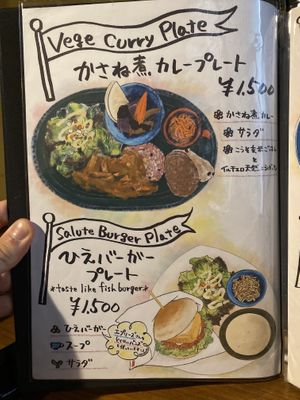 Vege Curry Plate
かさね煮 カレープレート
¥1,500
かさね煮カレー
サラダ
こうそ玄米ごはん
と
天然
Salute Burger Plate
ひえバーガー
プレート
*taste like fish burger*
¥1,500
ひえバーガー
スープ
サラダ